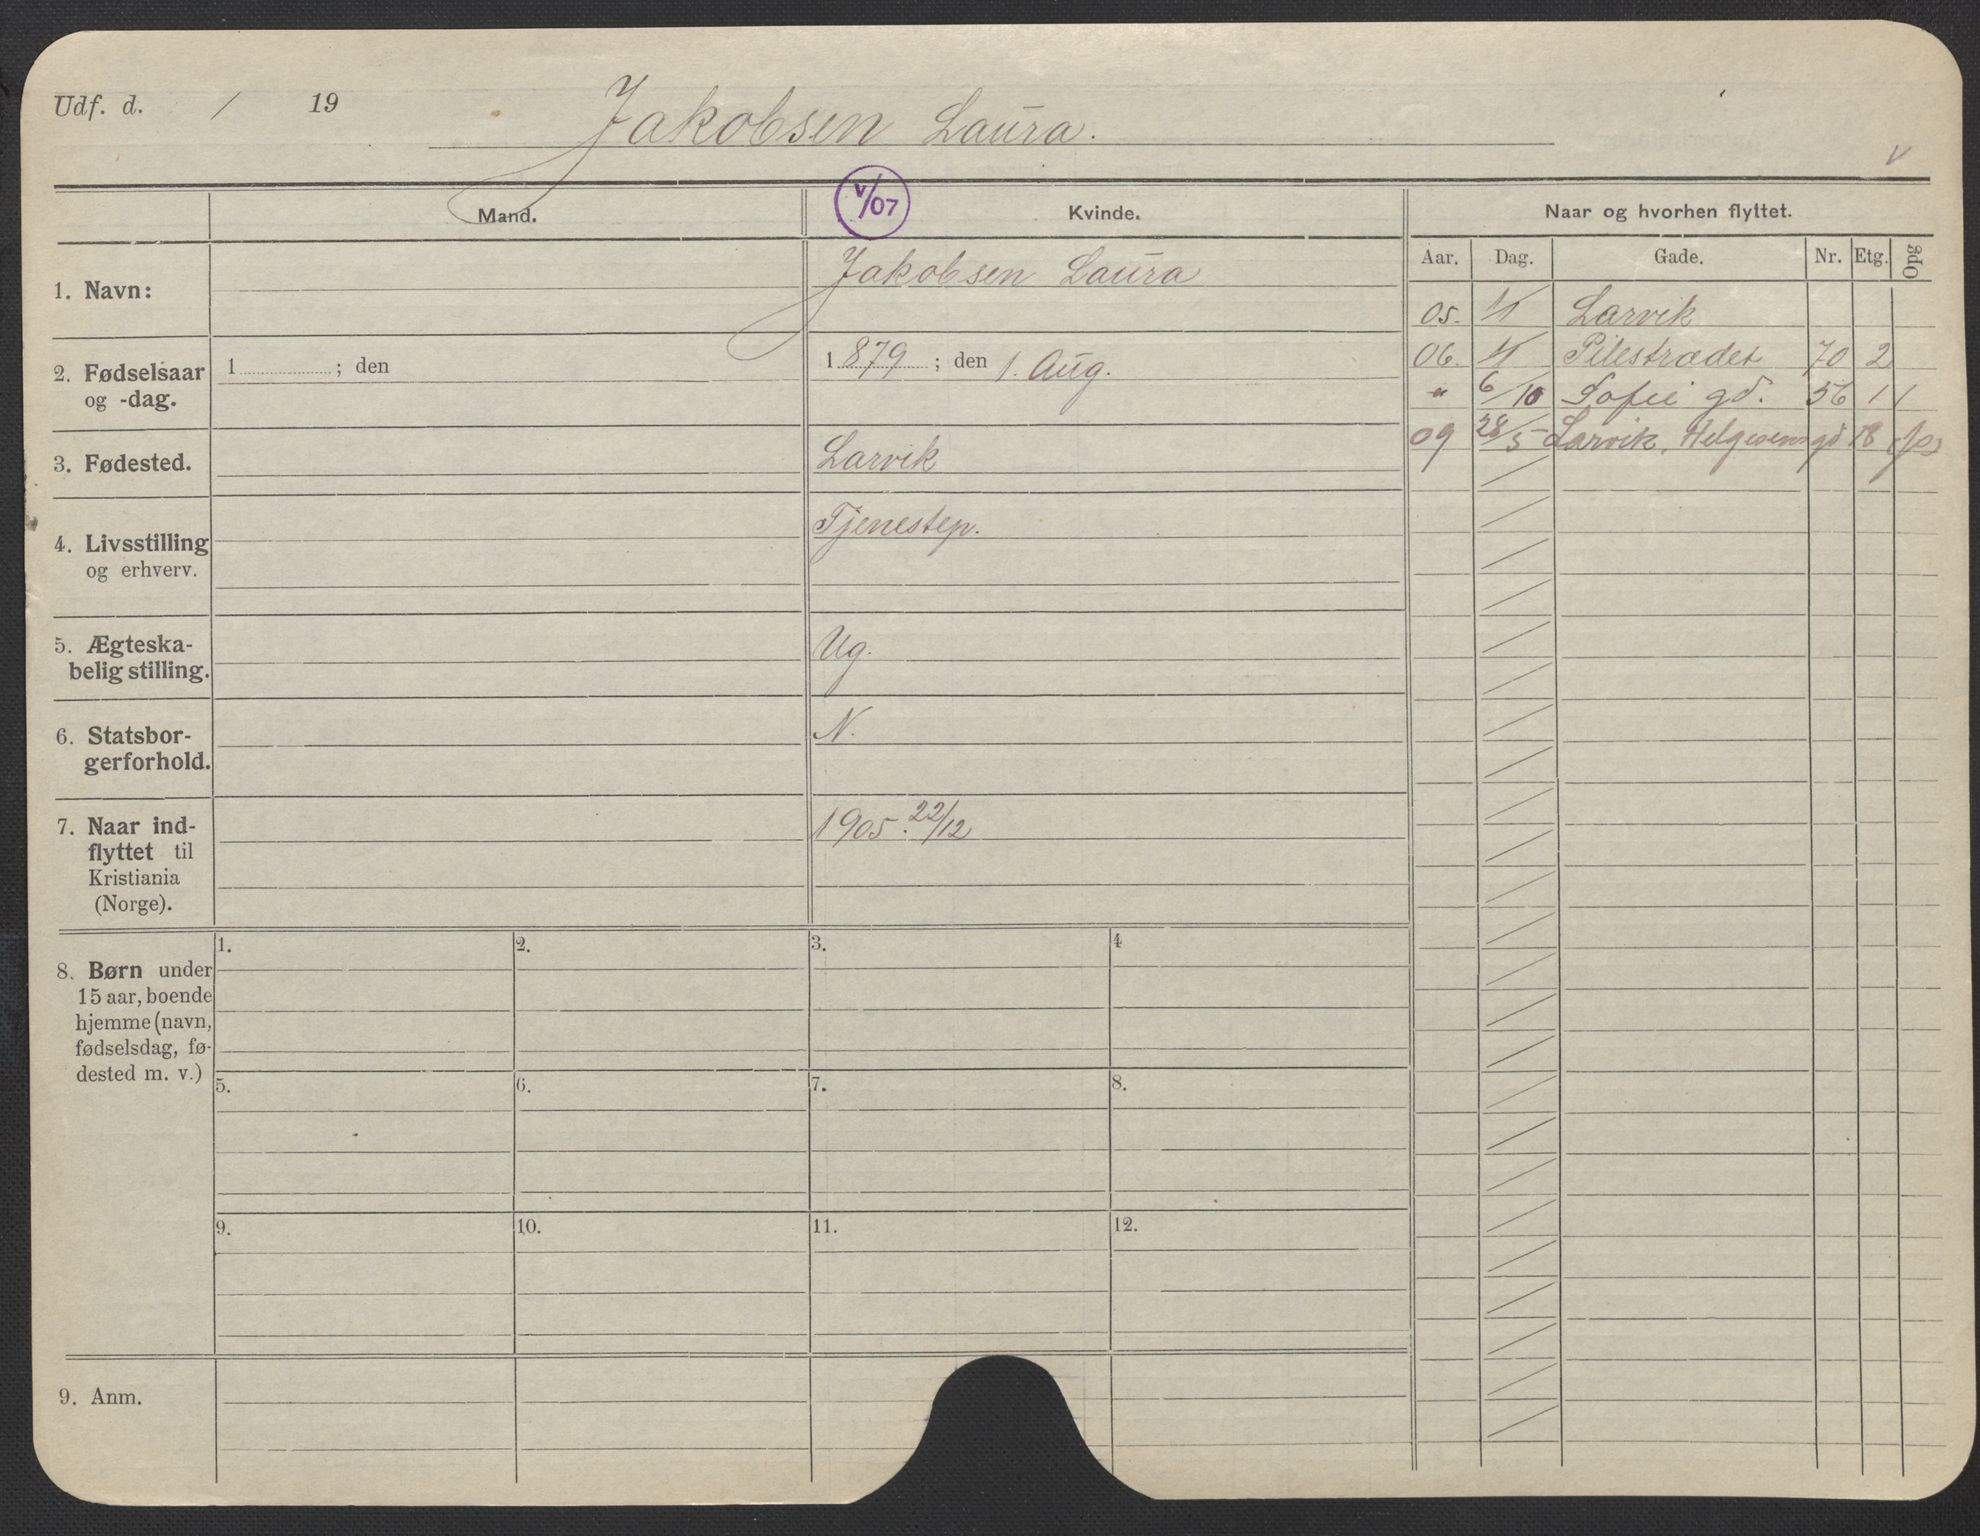 Udf. d. / 19
Jakobsen Laura.
v
Mand.
V/07
Kvinde.
Naar og hvorhen flyttet.
Aar. Dag. Gade. Nr. Etg. Opg
1. Navn:
Jakobsen Laura
2. Fødselsaar
og -dag.
1 ; den
1 879 ; den 1. Aug.
3. Fødested.
Larvik
4. Livsstilling
og erhverv.
Tjenestep.
5. Ægteska-
belig stilling.
Ug.
6. Statsbor-
gerforhold.
N.
7. Naar ind-
flyttet til
Kristiania
(Norge).
1905. 22/12
05. 1/1 Larvik
06. 1/1 Pilestrædet 70 2
" 6/10 Sofie gd. 56 11
09 28/5 Larvik, Helgesens gd 18
8. Børn under
15 aar, boende
hjemme (navn,
fødselsdag, fø-
dested m. v.)
1. 2. 3. 4
5. 6. 7. 8.
9. 10. 11. 12.
9. Anm.